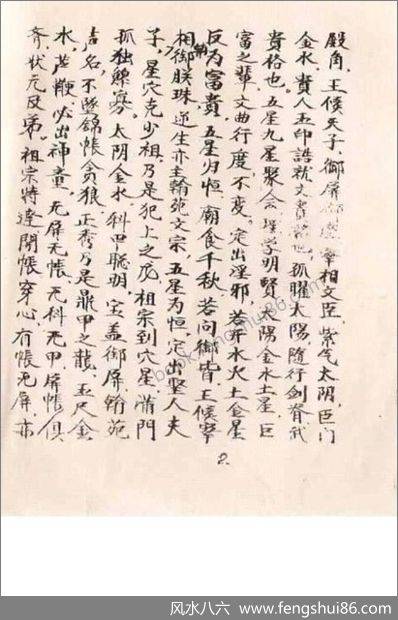 殿角，王侯天子，御屏御座，宰相文臣，紫气太阴，巨门
金水，贵人玉印，诰轴文书，孤曜太阳，随行剑脊，武
贵格也。五星九星聚会，理学明贤，太阳金水土星，巨
富之辈，文曲行度不变，定出淫邪，若开水火土金星
反为富贵，五星归恒，庙食千秋，若问御皆，王侯宰
相，御躾珠，逆生亦主翰苑文宗，五星为恒，定出圣人夫
子，星穴克少祖，乃是犯上之龙，祖宗到穴星，满门
孤独鳏寡。太阴金水，科甲聪明，宝盖御屏，翰苑
吉名，不坠锦帐贪狼，正秀乃是鼎甲之龙，玉尺金
水，芦鞭必出神童，无屏无帐，无科无甲，屏帐俱
齐，状元及第。祖宗特达，开帐穿心，有帐无屏，亦
2.
book.fengshui86.com
风水八六 www.fengshui86.com